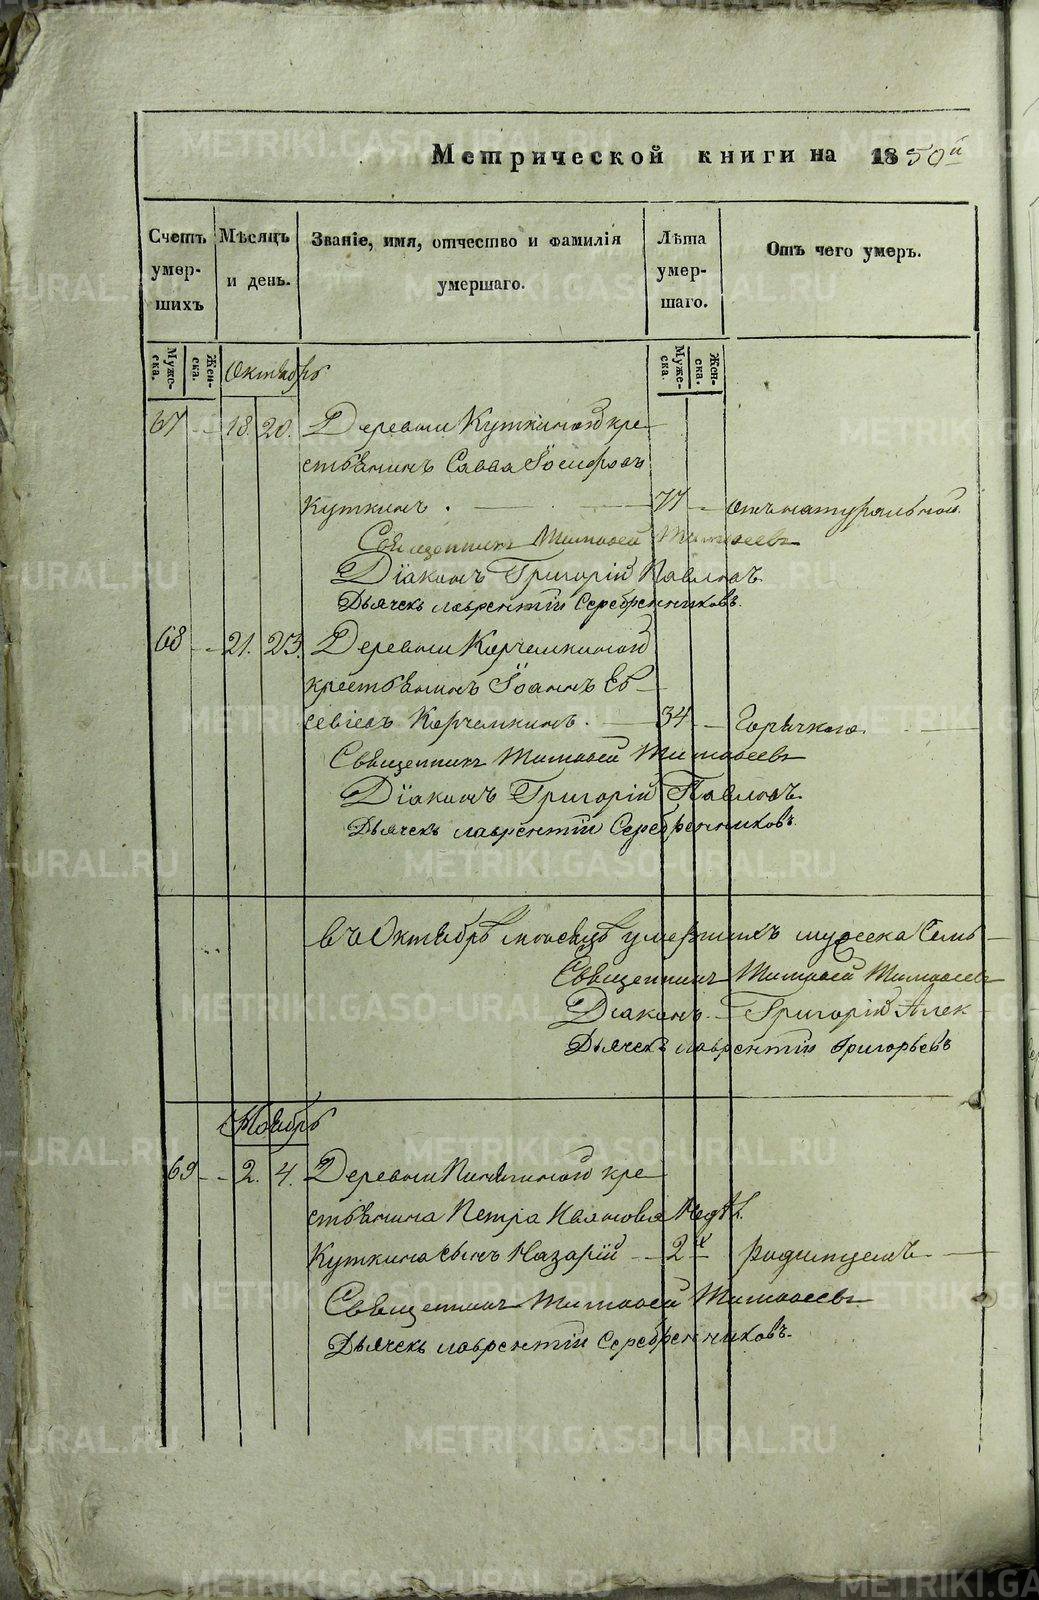 Метрической книги на 1850й
Счетъ умер-шихъ
Мѣсяцъ и день.
Званіе, имя, отчество и фамилія умершаго.
Лѣта умер-шаго.
Отъ чего умеръ.
Мужеска. Женска.
Мужеска. Женска.
Октябрь
67 18. 20. Деревни Куткиной кре-
стьянинъ Савва Іосифовъ
Куткинъ. 77 отъ натуральной
Священникъ Тимофей Тимофеевъ
Діаконъ Григорій Павловъ
Дьячекъ Лаврентій Серебренниковъ.
68 21. 23. Деревни Корчемкиной
крестьянинъ Іоаннъ Ев-
севіевъ Корчемкинъ. 34 Горячкою.
Священникъ Тимофей Тимофеевъ
Діаконъ Григорій Павловъ.
Дьячекъ Лаврентій Серебренниковъ.
въ Октябрѣ месяцѣ умершихъ мужеска Семь
Священникъ Тимофей Тимофеевъ
Діаконъ Григорій Алек
Дьячекъ Лаврентій Григорьевъ
Ноябрь
69 2. 4. Деревни кре-
стьянина Петра Иванова Недѣл.
Куткина сынъ Назарій 2х родимцемъ
Священникъ Тимофей Тимофеевъ
Дьячекъ Лаврентій Серебренниковъ.
METRIKI.GASO-URAL.RU